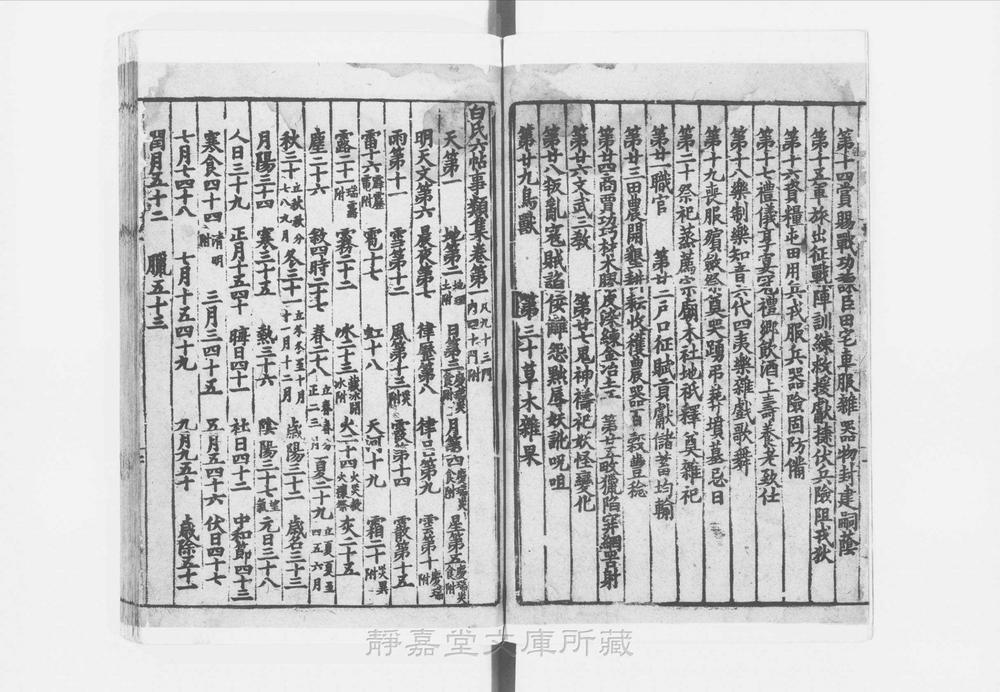 第十四賞賜戰功諫臣田宅車服雜器物封建嗣蔭
第十五軍旅出征戰陣訓練救援獻捷伏兵險阻戎狄
第十六資糧屯田用兵戎服兵器險固防備
第十七禮儀享宴冠禮鄉飲酒上壽養老致仕
第十八樂制樂知音六代四夷樂雜戲歌舞
第十九喪服殯斂祭奠哭踊弔葬墳墓忌日
第二十祭祀蒸薦宗廟本社地祇釋奠雜祀
第廿一職官 第廿二戶口征賦貢獻儲蓄均輸
第廿三田農開墾耕耘收穫農器百穀豐稔
第廿四商賈功巧 金冶土 第廿五畋獵陷穽網罟射
第廿六文武三教 第廿七鬼神禱祀妖怪變化
第廿八叛亂寇賊諂佞離怨黜辱妖訛呪咀
第廿九鳥獸 第三十草木雜果
白氏六帖事類集卷第一 凡九十三門 內四十門附
天第一 地第二地理土附 日第三慶瑞災食附 月第四慶瑞災食附 星第五慶瑞災食附
明天文第六 晨夜第七 律曆第八 律呂第九 雲第十慶瑞附
雨第十一 雪第十二 風第十三災附 霞第十四 霰第十五
雷十六霹靂電附 雹十七 虹十八 天河十九 霜二十災異附
露二十一瑞露附 霧二十二 冰二十三藏冰開冰附 火二十四火災救火禳祭 灰二十五
塵二十六 敘四時二十七 春二十八立春春分正二三月 夏二十九立夏夏至四五六月
秋三十立秋秋分七八九月 冬三十一立冬冬至十月十一月十二月 歲陽三十二 歲名三十三
月陽三十四 寒三十五 熱三十六 陰陽三十七望氣 元日三十八
人日三十九 正月十五四十 晦日四十一 社日四十二 中和節四十三
寒食四十四清明附 三月三四十五 五月五四十六 伏日四十七
七月七四十八 七月十五四十九 九月九五十 歲除五十一
閏月五十二 臘五十三
靜嘉堂文庫所藏